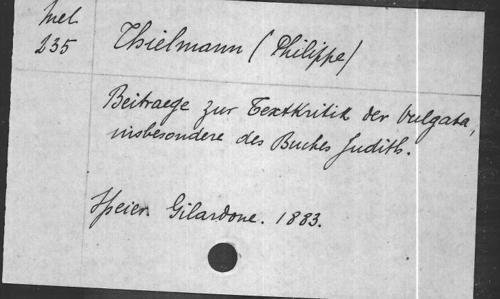 Mel.
235
Thielmann (Philippe)
Beitraege zur Textkritik der Vulgata,
insbesondere des Buches Judith.
Speier. Gilardone. 1883.